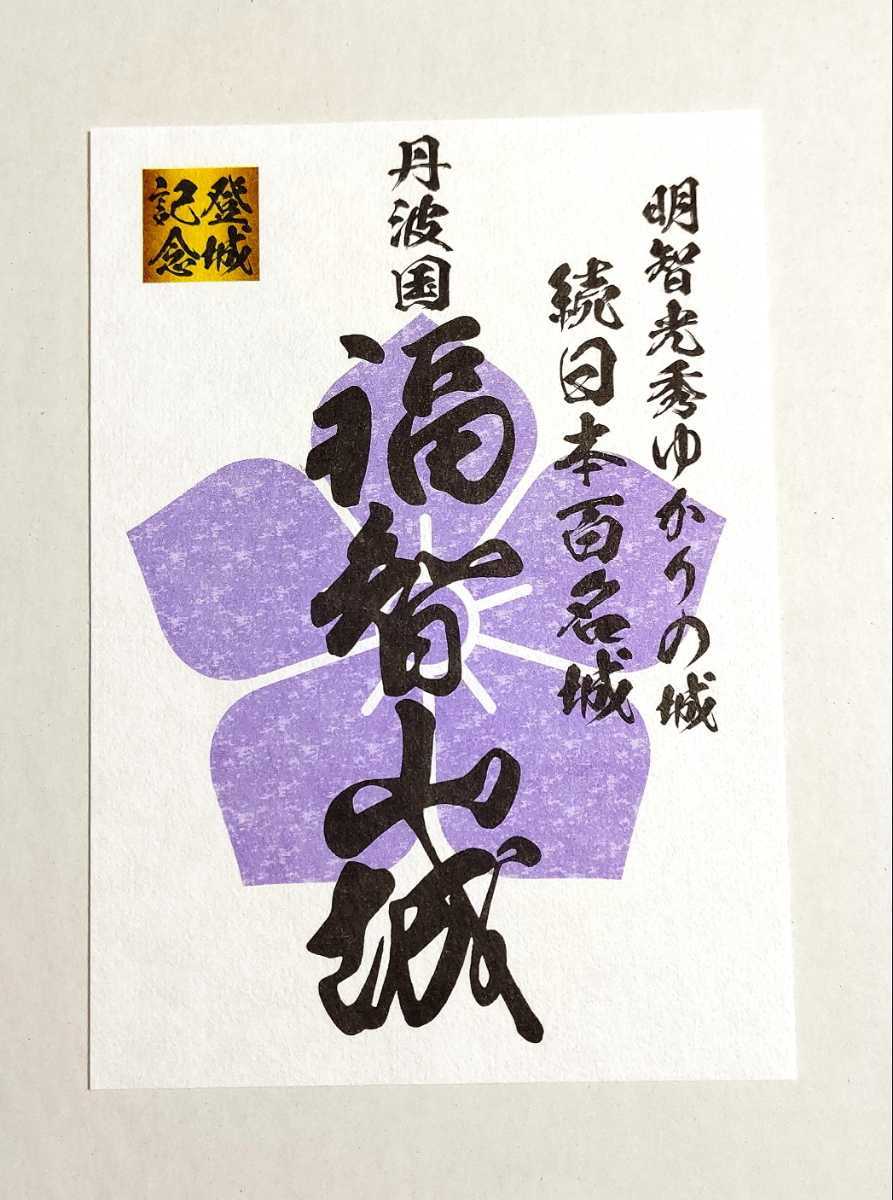 明智光秀ゆかりの城
続日本百名城
丹波国
福智山城
登城
記念